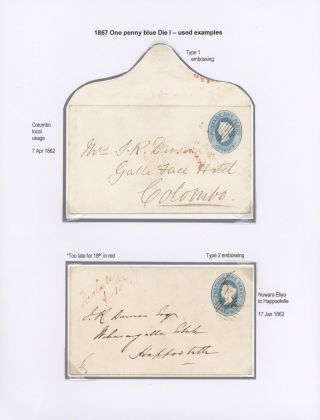 1857 One penny blue Die I – used examples
Type 1
embossing
Colombo
local
usage
7 Apr 1862
Mrs J. R. Dawson
Galle Face Hotel
Colombo
"Too late for 18th" in red
Type 2 embossing
Too late
J. R. Dawson Esq
Estate
Happootelle
Nuwara Eliya
to Happootelle
17 Jan 1862